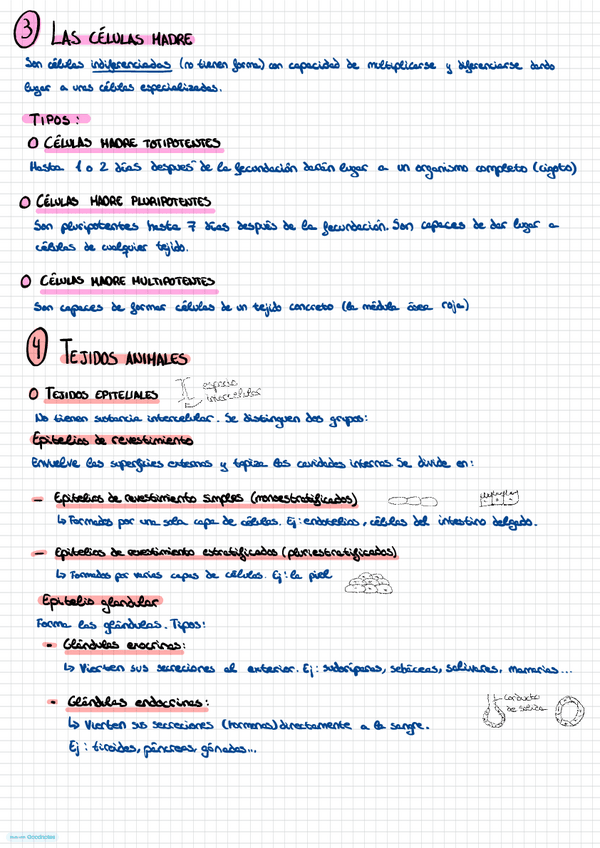 3 LAS CÉLULAS MADRE
Son células indiferenciadas (no tienen forma) con capacidad de multiplicarse y diferenciarse dando
lugar a unas células especializadas.
TIPOS:
CÉLULAS MADRE TOTIPOTENTES
Hasta 1 o 2 días después de la fecundación darán lugar a un organismo completo (cigoto)
CÉLULAS MADRE PLURIPOTENTES
Son pluripotentes hasta 7 días después de la fecundación. Son capaces de dar lugar a
células de cualquier tejido.
CÉLULAS MADRE MULTIPOTENTES
Son capaces de formar células de un tejido concreto (la médula ósea roja)
4 TEJIDOS ANIMALES
TEJIDOS EPITELIALES
espacio
intercelular
No tienen sustancia intercelular. Se distinguen dos grupos:
Epitelios de revestimiento
Envuelve las superficies externas y tapiza las cavidades internas. Se divide en:
- Epitelios de revestimiento simples (monoestratificados)
↳ Formados por una sola capa de células. Ej: endotelios, células del intestino delgado.
- Epitelios de revestimiento estratificados (pluriestratificados)
↳ Formados por varias capas de células. Ej: la piel
Epitelio glandular
Forma las glándulas. Tipos:
- Glándulas exocrinas:
↳ Vierten sus secreciones al exterior. Ej: sudoríparas, sebáceas, salivares, mamarias...
- Glándulas endocrinas:
conducto
de salida
↳ Vierten sus secreciones (hormonas) directamente a la sangre.
Ej: tiroides, páncreas, gónadas...
Goodnotes